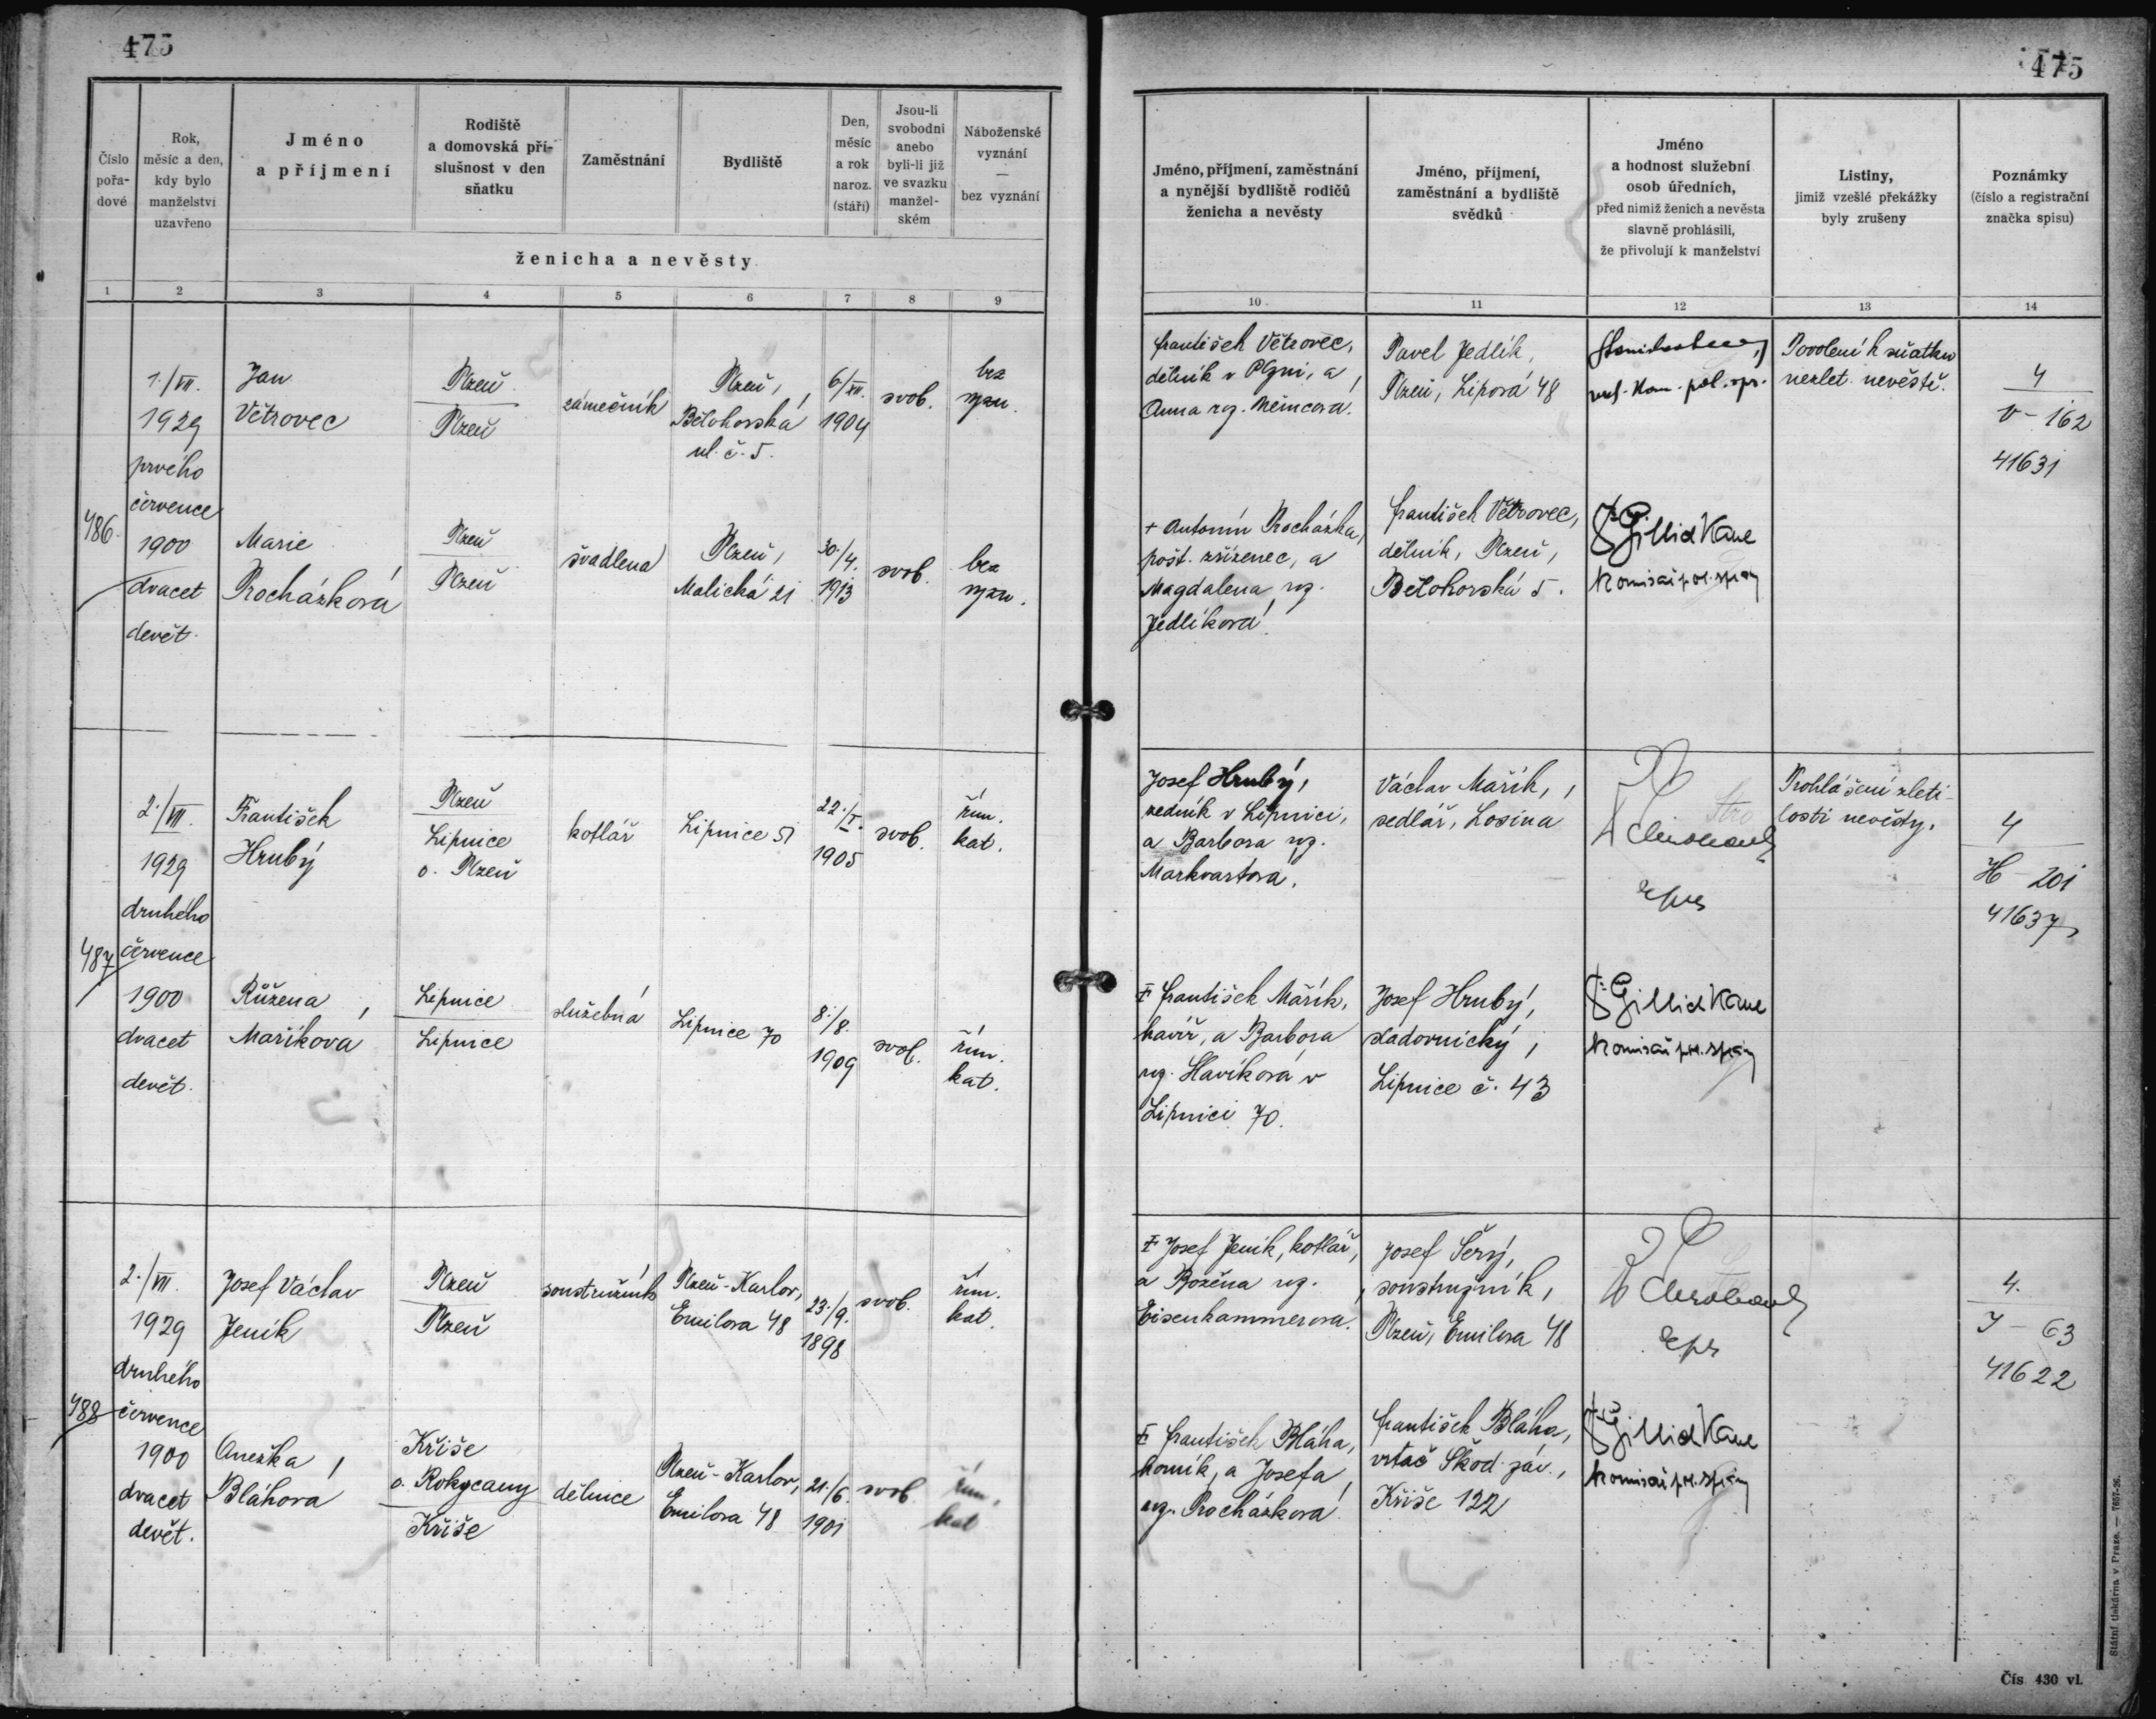 475
475
Číslo pořa- dové
Rok, měsíc a den, kdy bylo manželství uzavřeno
Jméno a příjmení
Rodiště a domovská pří- slušnost v den sňatku
Zaměstnání
Bydliště
Den, měsíc a rok naroz. (stáří)
Jsou-li svobodni anebo byli-li již ve svazku manžel- ském
Náboženské vyznání — bez vyznání
ženicha a nevěsty
Jméno, příjmení, zaměstnání a nynější bydliště rodičů ženicha a nevěsty
Jméno, příjmení, zaměstnání a bydliště svědků
Jméno a hodnost služební osob úředních, před nimiž ženich a nevěsta slavně prohlásili, že přivolují k manželství
Listiny, jimiž vzešlé překážky byly zrušeny
Poznámky (číslo a registrační značka spisu)
1 2 3 4 5 6 7 8 9 10 11 12 13 14
486
1./VII.
1929
prvého
července
1900
dvacet
devět.
Jan
Větrovec
Plzeň
Plzeň
zámečník
Plzeň,
Bělohorská
ul. č. 5.
6./VII.
1904
svob.
bez
vyzn.
František Větrovec,
dělník v Plzni, a
Anna roz. Němcová.
Pavel Jedlík,
Plzeň, Lipová 48
Povolení k sňatku
nezlet. nevěstě.
4
V – 162
41631
Marie
Procházková
Plzeň
Plzeň
švadlena
Plzeň,
Malická 21
30./4.
1913
svob.
bez
vyzn.
+ Antonín Procházka,
pošt. zřízenec, a
Magdalena roz.
Jedlíková.
František Větrovec,
dělník, Plzeň,
Bělohorská 5.
komisař pol. správy
487
2./VII.
1929
druhého
července
1900
dvacet
devět.
František
Hrubý
Plzeň
Lipnice
o. Plzeň
kotlář
Lipnice 51
22./I.
1905
svob.
řím.
kat.
Josef Hrubý,
zedník v Lipnici,
a Barbora roz.
Markvartová.
Václav Mařík,
sedlář, Losina
Prohlášení zleti-
losti nevěsty.
4
H – 201
41637
Růžena
Maříková
Lipnice
Lipnice
služebná
Lipnice 70
8./8.
1909
svob.
řím.
kat.
František Mařík,
havíř, a Barbora
roz. Havíková v
Lipnici 70.
Josef Hrubý,
sládovnický,
Lipnice č. 43
komisař pol. správy
488
2./VII.
1929
druhého
července
1900
dvacet
devět.
Josef Václav
Jeník
Plzeň
Plzeň
soustružník
Plzeň-Karlov,
Emilova 48
23./9.
1898
svob.
řím.
kat.
Josef Jeník, kotlář,
a Božena roz.
Eisenhammerová.
Josef Šerý,
soustružník,
Plzeň, Emilova 48
4.
J – 63
41622
Anežka
Bláhová
Kříše
o. Rokycany
Kříše
dělnice
Plzeň-Karlov,
Emilova 48
21./6.
1901
svob.
řím.
kat
František Bláha,
horník, a Josefa
roz. Procházková
František Bláha,
vrtač Škod. záv.,
Kříše 122
komisař pol. správy
Státní tiskárna v Praze. — 7657-26.
Čís 430 vl.